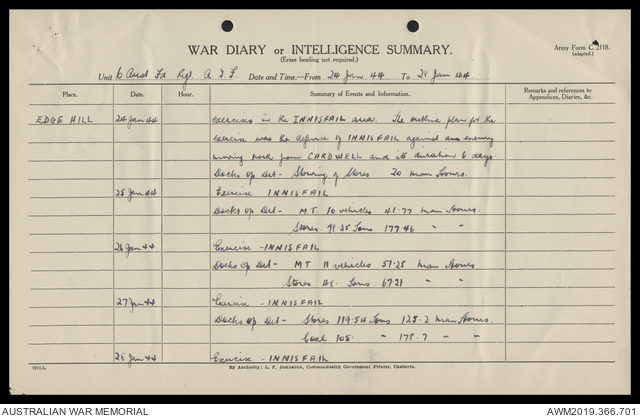 WAR DIARY or INTELLIGENCE SUMMARY.
(Erase heading not required.)
Army Form C. 2118.
(adapted.)
Unit 6 Aust Fx Regt A.I.F. Date and Time.—From 24 Jan 44 To 28 Jan 44
Place. Date. Hour. Summary of Events and Information. Remarks and references to Appendices, Diaries, &c.
EDGE HILL 24 Jan 44 Exercises in the INNISFAIL area. The outline plan for the
exercise was the defence of INNISFAIL against an enemy
moving north from CARDWELL and its duration 6 days.
Docks Op Det - Stowing of Stores 20 man hours.
25 Jan 44 Exercise INNISFAIL
Docks Op Det - M.T. 10 vehicles 41.77 man hours.
Stores 91.35 Tons 177.46 " "
26 Jan 44 Exercise - INNISFAIL
Docks Op Det - MT 11 vehicles 51.25 man hours.
Stores 48. Tons 67.21 " "
27 Jan 44 Exercise - INNISFAIL
Docks Op Det - Stores 119.54 Tons 125.2 man hours.
Coal 105. " 178.7 " "
28 Jan 44 Exercise - INNISFAIL
By Authority: L. F. Johnston, Commonwealth Government Printer, Canberra.
AUSTRALIAN WAR MEMORIAL
AWM2019.366.701